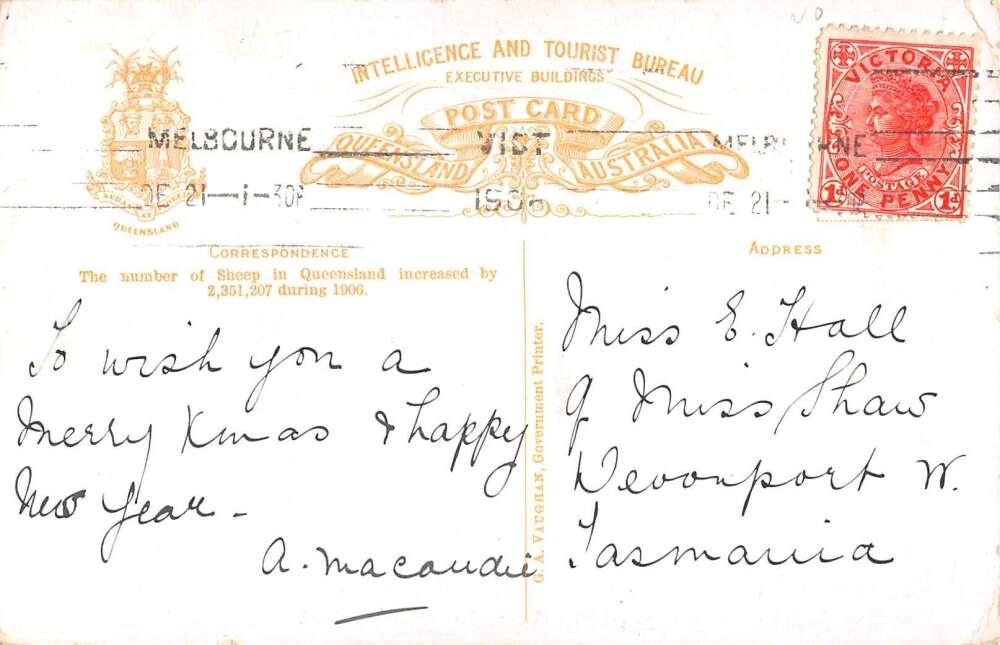 INTELLIGENCE AND TOURIST BUREAU
EXECUTIVE BUILDINGS
POST CARD
QUEENSLAND AUSTRALIA
QUEENSLAND
VICTORIA
POSTAGE
1d ONE PENNY 1d
MELBOURNE VICT MELBOURNE
DE 21 — 1-30P DE 21
CORRESPONDENCE
The number of Sheep in Queensland increased by
2,351,207 during 1906.
To wish you a
Merry Xmas & happy
New Year -
G. A. VAUGHAN, Government Printer.
ADDRESS
Miss E. Hall
Miss Shaw
Devonport W.
Tasmania